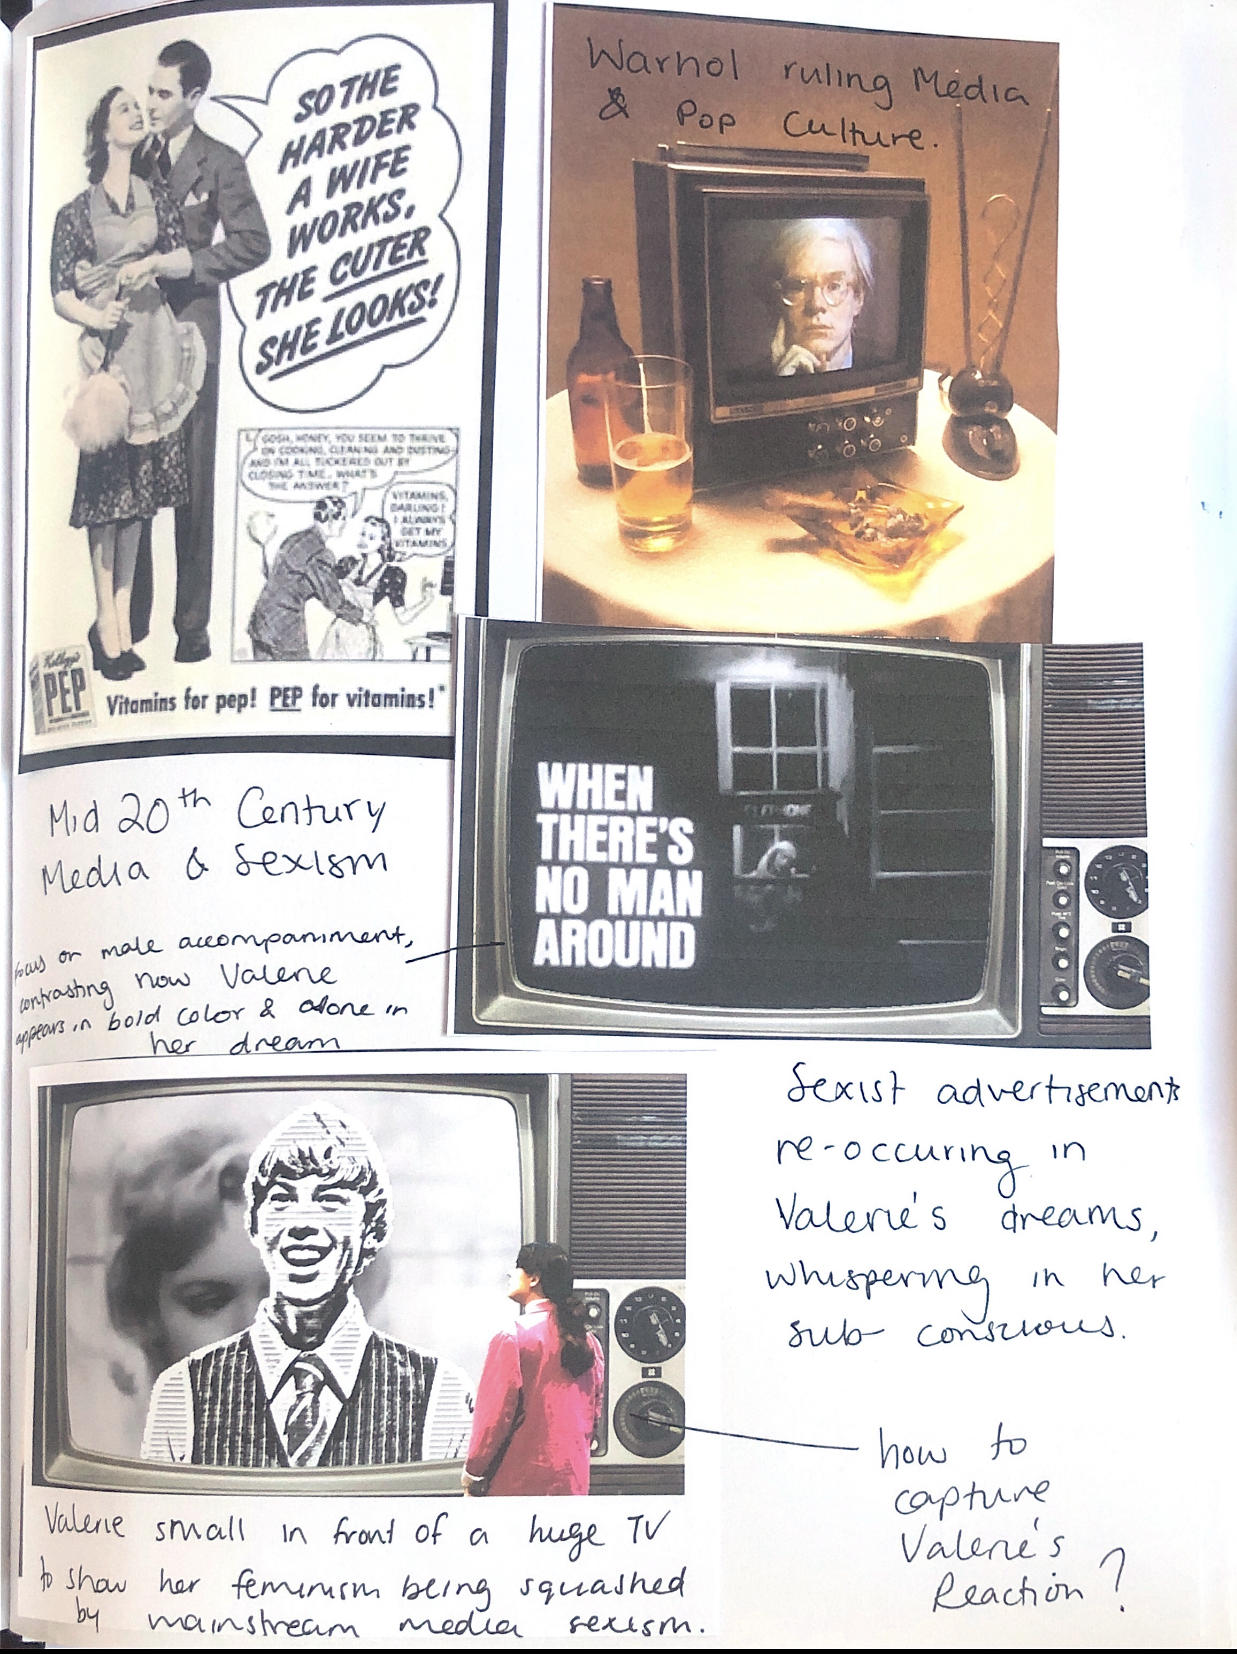 SO THE
HARDER
A WIFE
WORKS,
THE CUTER
SHE LOOKS!
GOSH, HONEY, YOU SEEM TO THRIVE
ON COOKING, CLEANING AND DUSTING-
AND I'M ALL TUCKERED OUT BY
CLOSING TIME. WHAT'S
THE ANSWER?
VITAMINS,
DARLING!
I ALWAYS
GET MY
VITAMINS
Kellogg's
PEP
Vitamins for pep! PEP for vitamins!*
Warhol ruling Media
& Pop Culture.
WHEN
THERE'S
NO MAN
AROUND
Mid 20th Century
Media & Sexism
focus on male accompaniment,
contrasting how Valerie
appears in bold color & alone in
her dream
Sexist advertisements
re-occuring in
Valerie's dreams,
whispering in her
sub conscious.
how to
capture
Valerie's
Reaction?
Valerie small in front of a huge TV
to show her feminism being squashed
by mainstream media sexism.